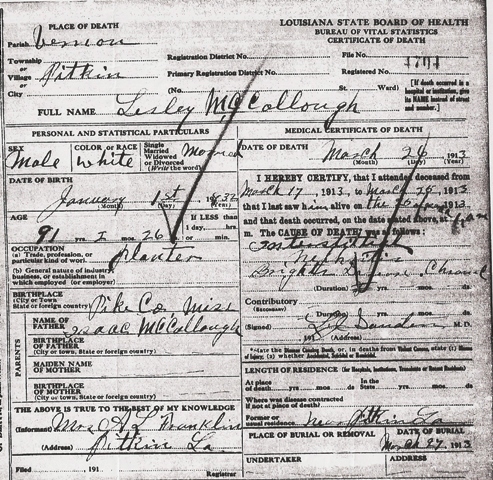 LOUISIANA STATE BOARD OF HEALTH
BUREAU OF VITAL STATISTICS
CERTIFICATE OF DEATH
PLACE OF DEATH
Parish Vernon
Township
or
Village Pitkin
or
City
Registration District No.
File No.
Primary Registration District No.
Registered No.
(No. St. Ward)
[If death occurred in a hospital or institution, give its NAME instead of street and number.]
FULL NAME Lesley McCollough
PERSONAL AND STATISTICAL PARTICULARS
SEX Male
COLOR OR RACE White
Single
Married
Widowed
or Divorced
(Write the word)
Married
DATE OF BIRTH
January 1st
(Month) (Day) (Year)
AGE
91 mos. 26
If LESS than
1 day, hrs.
or min.
OCCUPATION
(a) Trade, profession, or particular kind of work
Planter
(b) General nature of industry, business, or establishment in which employed (or employer)
BIRTHPLACE
(City or Town
State or foreign country)
Pike Co, Miss
PARENTS
NAME OF FATHER Isaac McCollough
BIRTHPLACE OF FATHER
(City or town, State or foreign country)
MAIDEN NAME OF MOTHER
BIRTHPLACE OF MOTHER
(City or town, State or foreign country)
THE ABOVE IS TRUE TO THE BEST OF MY KNOWLEDGE
(Informant) Mrs A L Franklin
(Address) Pitkin La
Filed 191
Registrar
MEDICAL CERTIFICATE OF DEATH
DATE OF DEATH
March 26 1913
(Month) (Day) (Year)
I HEREBY CERTIFY, that I attended deceased from
March 17, 1913, to March 25, 1913
that I last saw him alive on the 1913
and that death occurred, on the date stated above, at
The CAUSE OF DEATH was as follows:
Interstitial
Nephritis
Brights Disease. Chronic
(Duration) ds.
Contributory
(Secondary)
(Duration) ds.
(Signed) Sanders M. D.
191 (Address)
LENGTH OF RESIDENCE (for Hospitals, Institutions, Transients or Recent Residents)
At place of death yrs. mos. ds.
In the State yrs. mos. ds.
Where was disease contracted if not at place of death?
Former or usual residence near Pitkin La
PLACE OF BURIAL OR REMOVAL
DATE OF BURIAL
March 27 1913
UNDERTAKER
ADDRESS